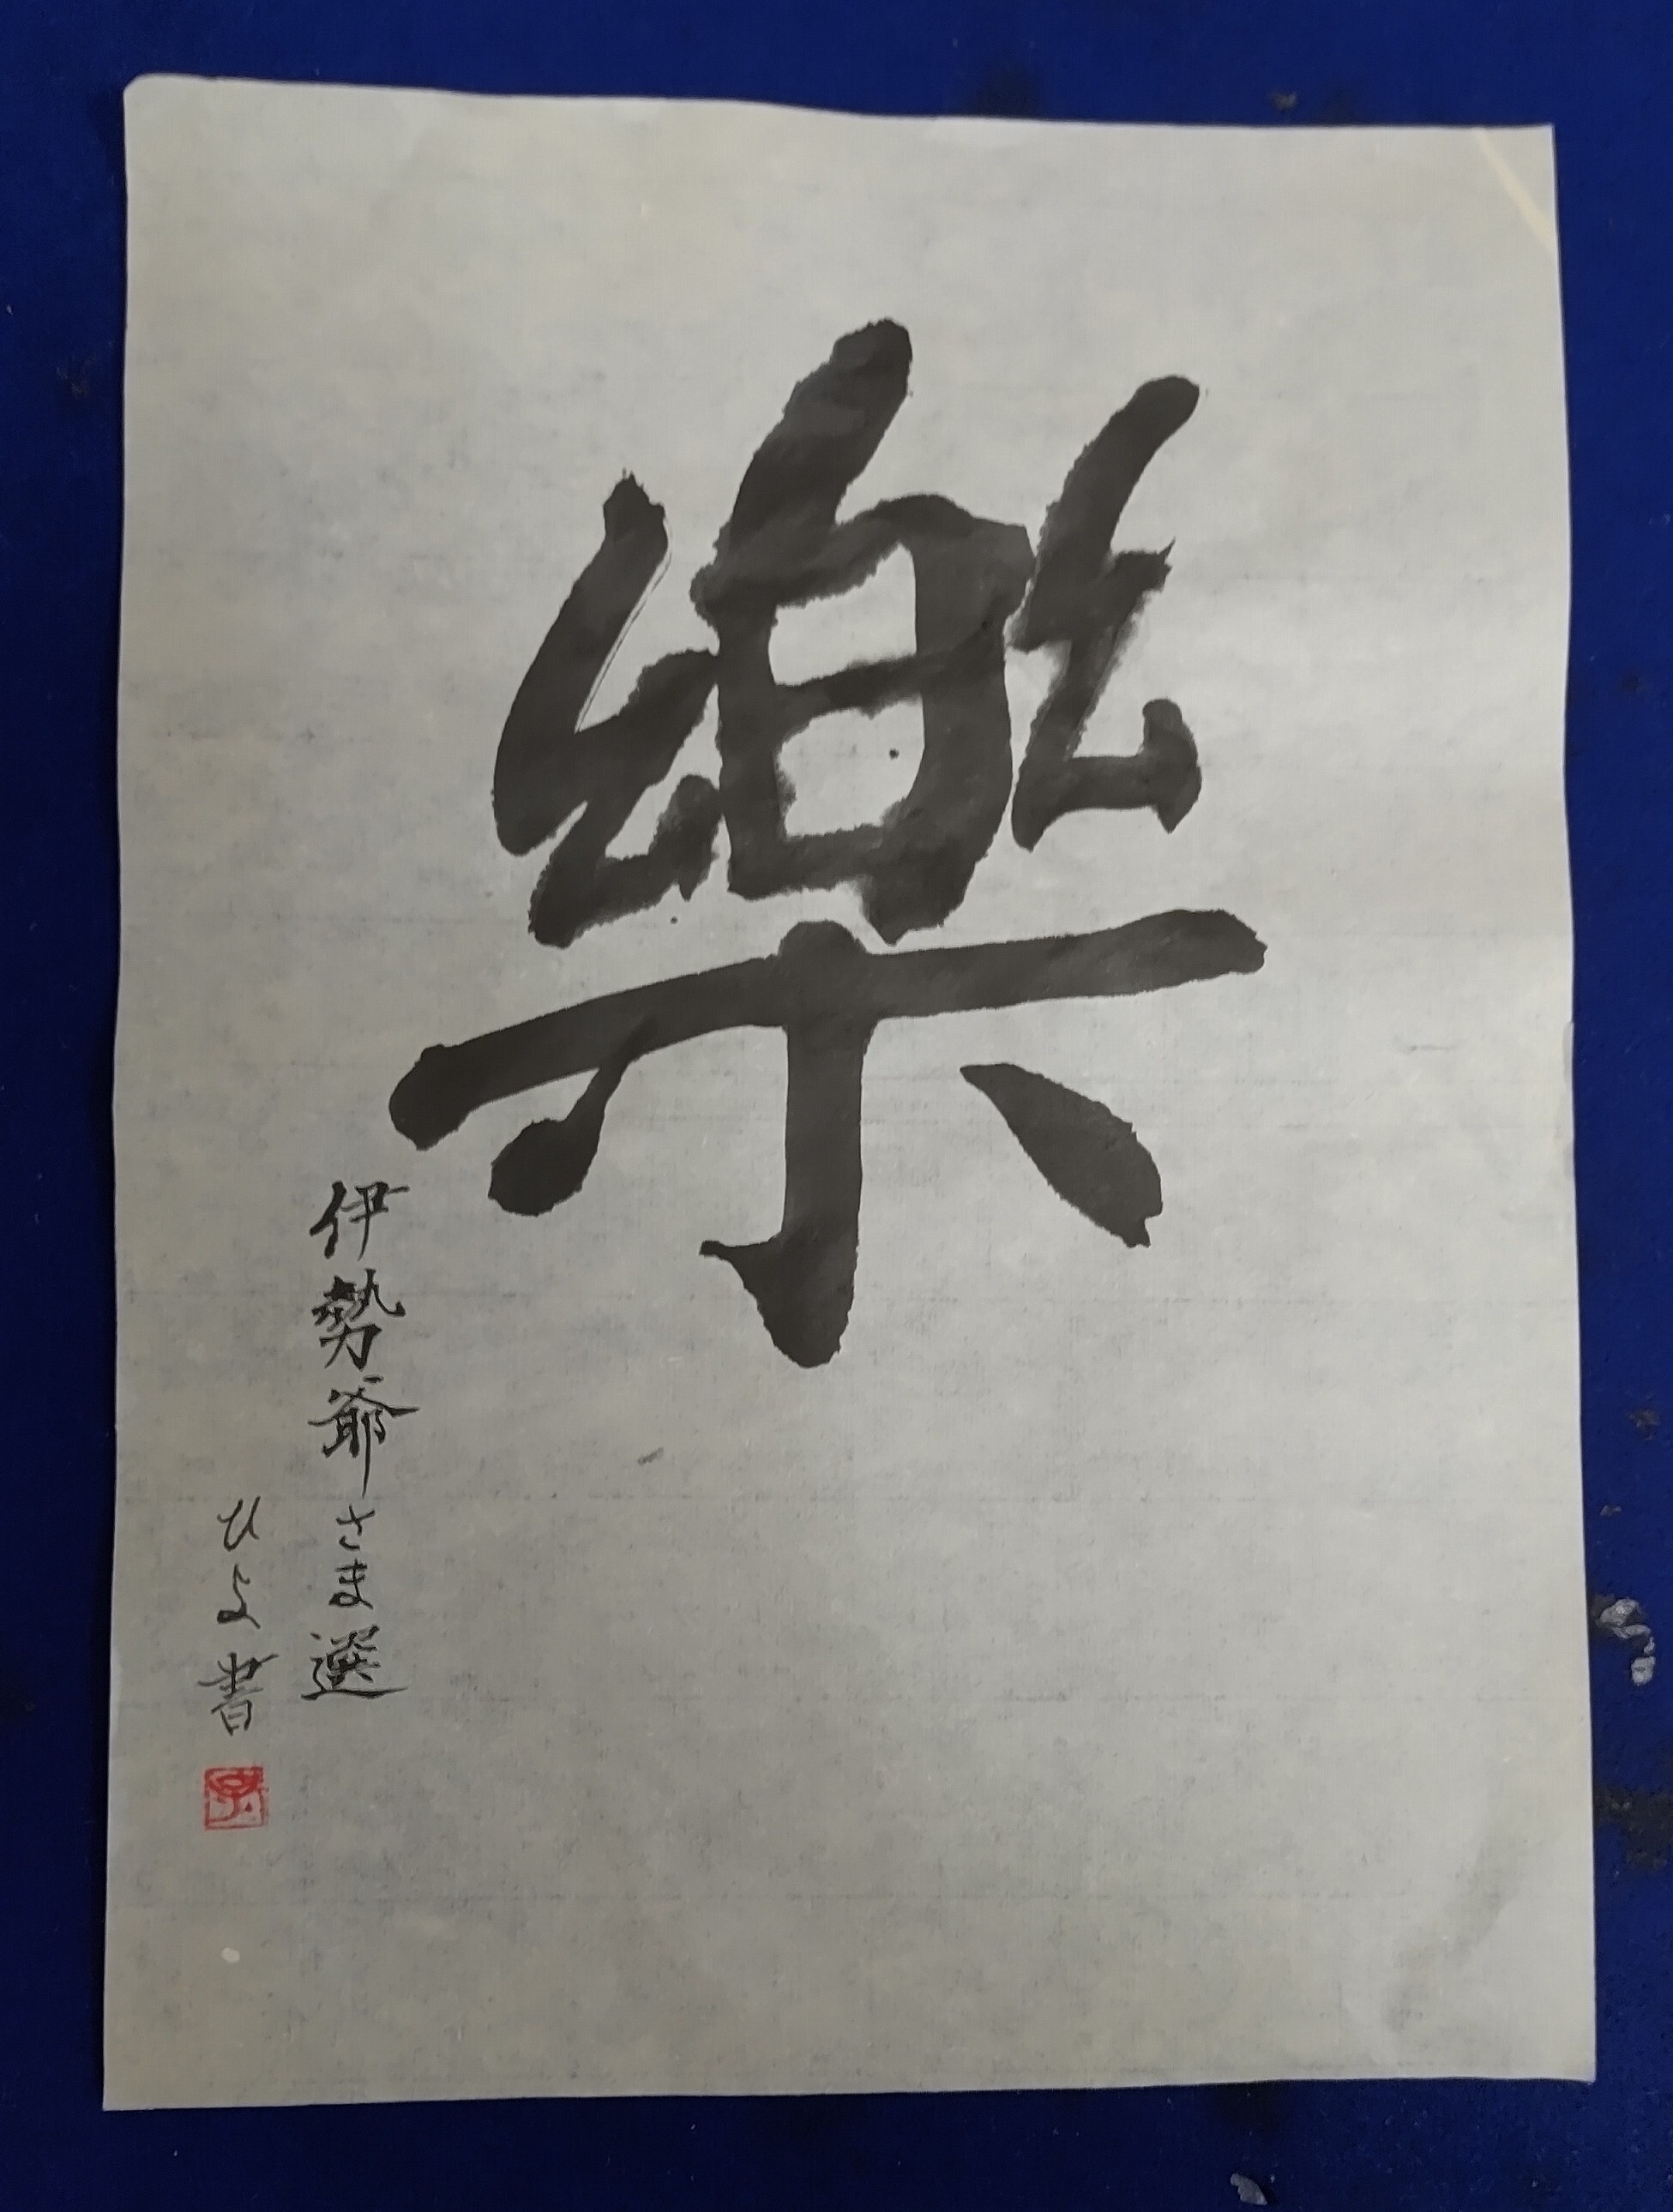 樂
伊勢爺さま選
ひよ書